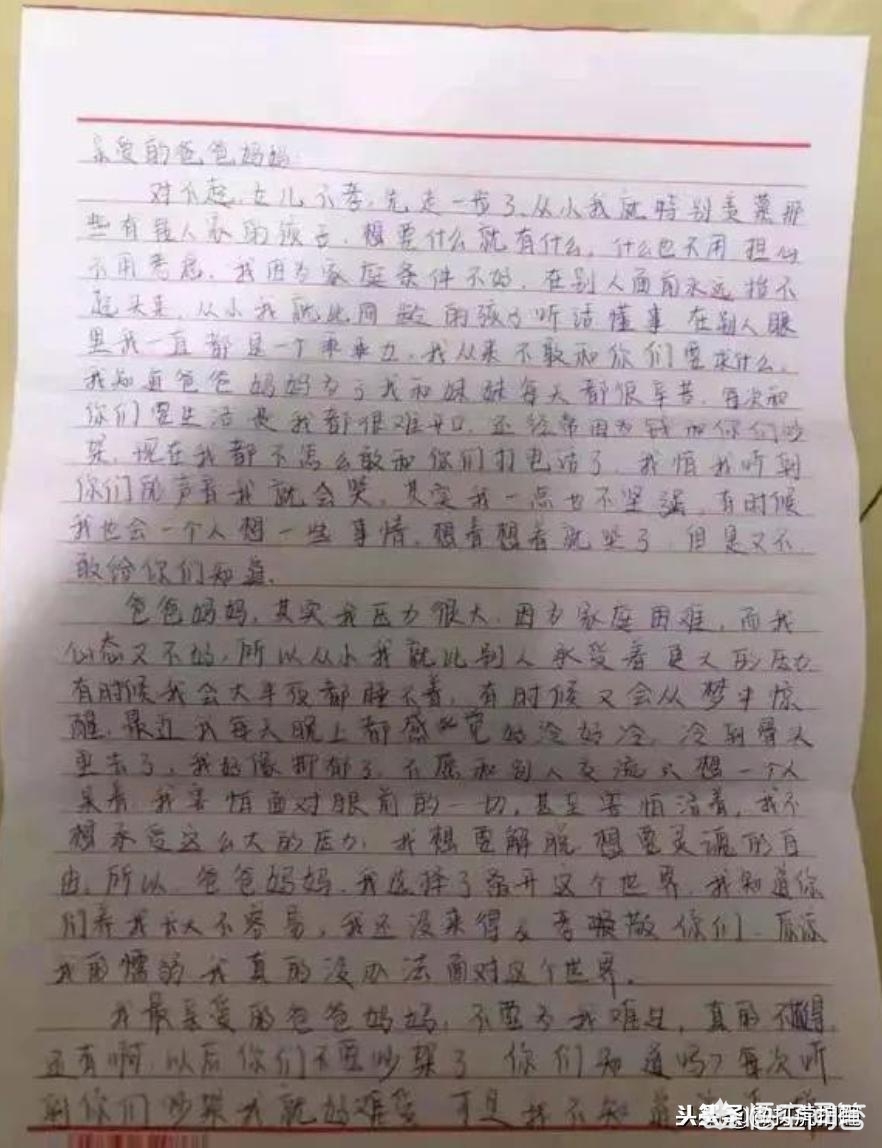 亲爱的爸爸妈妈:
对不起,女儿不孝,先走一步了,从小我就特别羡慕那
些有钱人家的孩子,想要什么就有什么,什么也不用担心
不用考虑,我因为家庭条件不好,在别人面前永远抬不
起头来,从小我就比同龄的孩子听话懂事 在别人眼
里我一直都是一个乖乖女,我从来不敢和你们要求什么,
我知道爸爸妈妈为了我和妹妹每天都很辛苦,每次和
你们要生活费我都很难开口,还经常因为钱和你们吵
架,现在我都不怎么敢和你们打电话了,我怕我听到
你们的声音我就会哭,其实我一点也不坚强,有时候
我也会一个人想一些事情,想着想着就哭了,但是又不
敢给你们知道.
爸爸妈妈,其实我压力很大,因为家庭困难,而我
心态又不好,所以从小我就比别人承受着更大的压力
有时候我会大半夜都睡不着,有时候又会从梦中惊
醒,最近我每天晚上都感觉好冷好冷,冷到骨头
里去了,我好像抑郁了,不愿和别人交流只想一个人
呆着,我害怕面对眼前的一切,甚至害怕活着,我不
想承受这么大的压力,我想要解脱想要灵魂的自
由,所以,爸爸妈妈,我选择了离开这个世界,我知道你
们养我长大不容易,我还没来得及孝敬你们,原谅
我的懦弱 我真的没办法面对这个世界.
我最亲爱的爸爸妈妈,不要为我难过,真的不值得,
还有啊,以后你们不要吵架了 你们知道吗?每次听
到你们吵架我就好难受 可是我不知道
头条
悟空问答